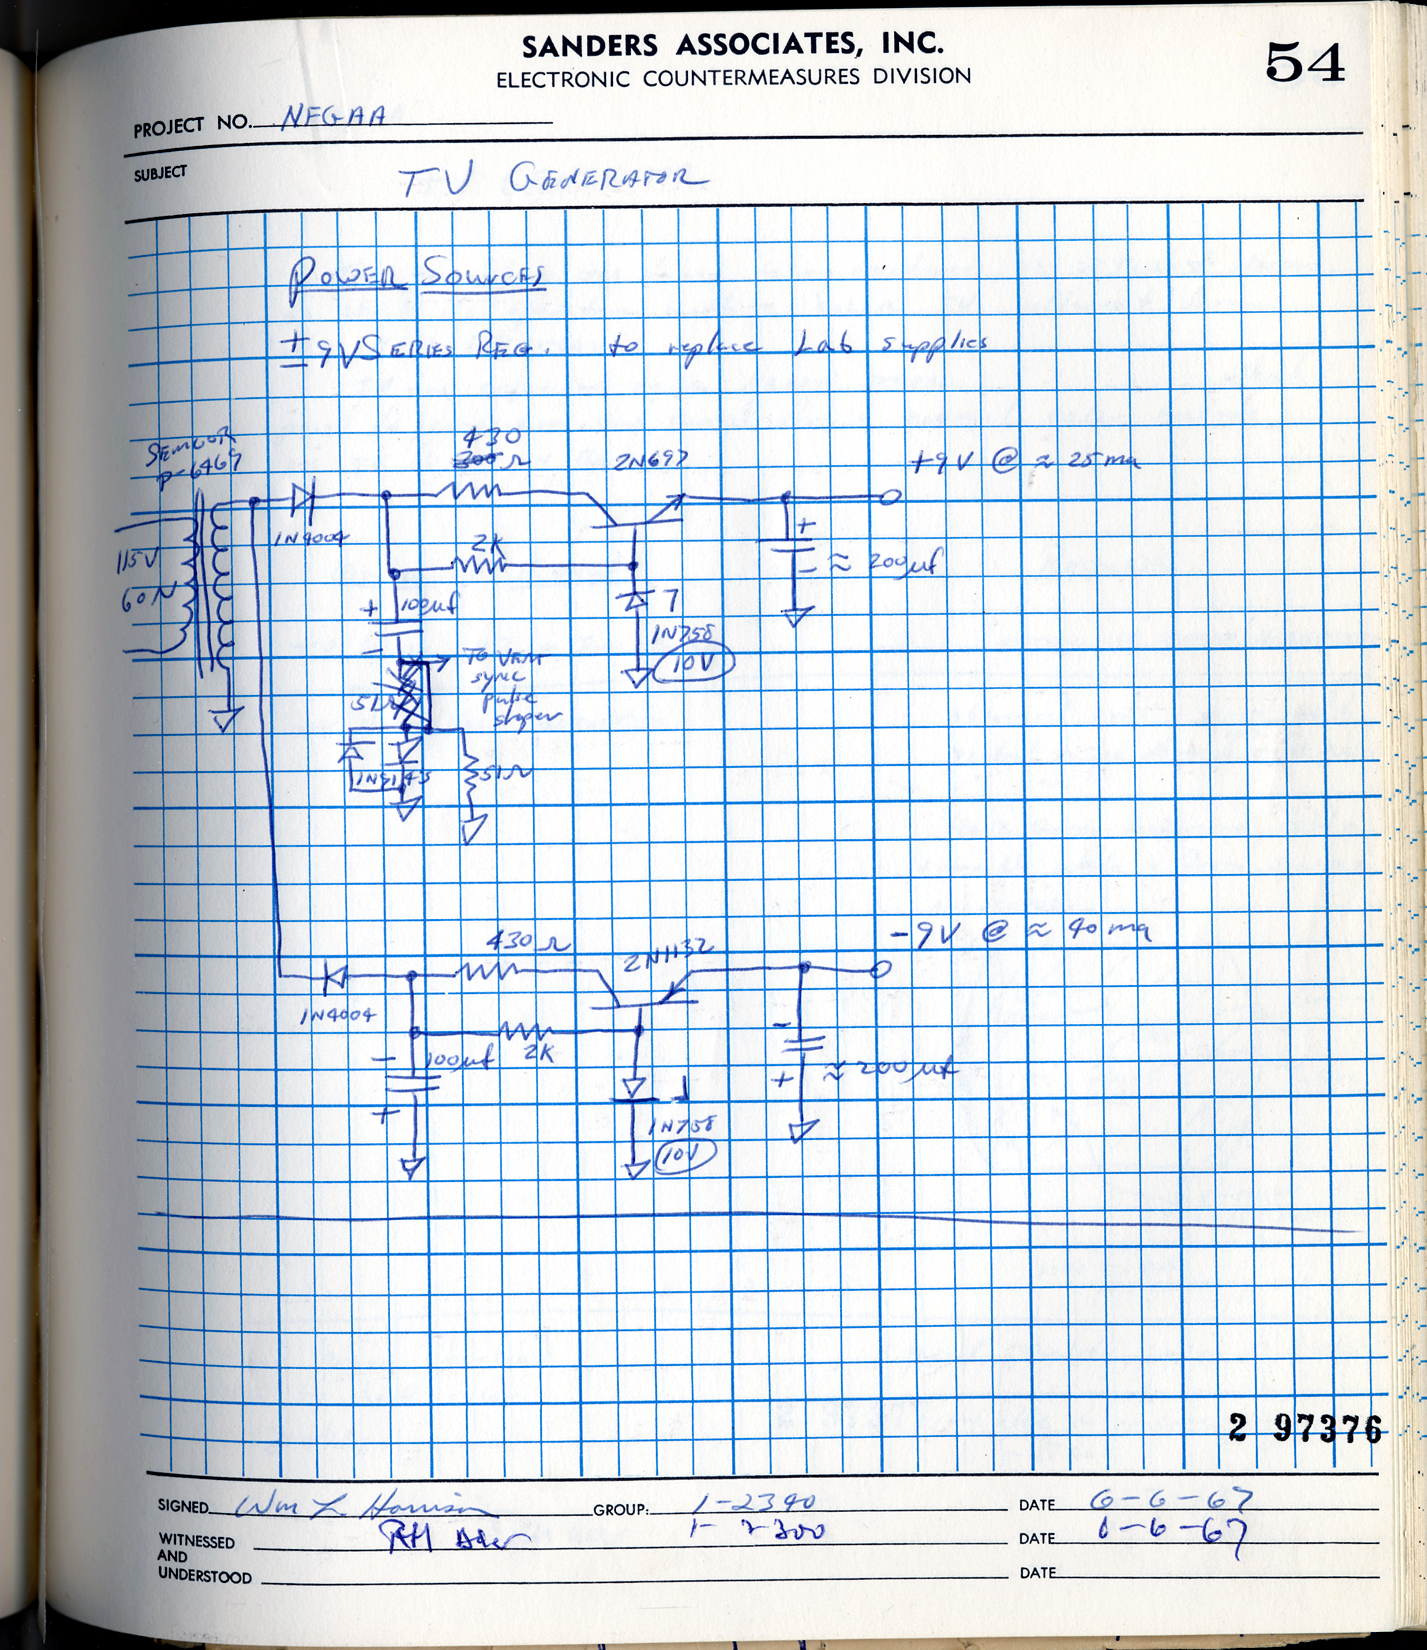 SANDERS ASSOCIATES, INC.
ELECTRONIC COUNTERMEASURES DIVISION
54
PROJECT NO. NFGAA
SUBJECT
TV GENERATOR
POWER SOURCES
± 9V SERIES REG. to replace Lab supplies
SEMCOR
P-6469
115V
60~
430
300Ω
2N697
+9V @ ≈ 25 ma
1N4004
2K
+
≈ 200µf
-
+
100µf
-
1N758
10V
TO VERT
sync
pulse
shaper
51Ω
1N3143
51Ω
430Ω
2N1132
-9V @ ≈ 40 ma
1N4004
2K
-
100µf
+
-
≈ 200µf
+
1N758
10V
2 97376
SIGNED Wm L Harrison GROUP: 1-2390 DATE 6-6-67
WITNESSED
AND
UNDERSTOOD
RH 1-2300 DATE 6-6-67
DATE